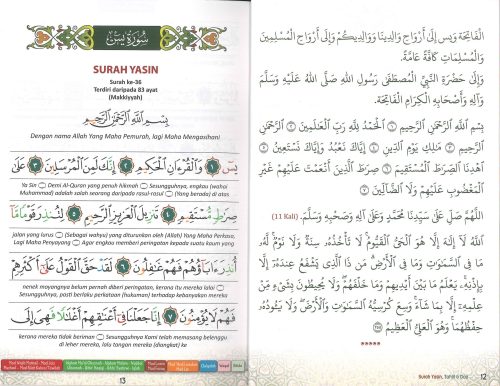 الْفَاتِحَةَ وَيس إِلَى أَرْوَاحِ وَالِدِينَا وَوَالِدِيكُمْ وَإِلَى أَرْوَاحِ الْمُسْلِمِينَ
وَالْمُسْلِمَاتِ كَافَّةً عَامَّةً
وَإِلَى حَضْرَةِ النَّبِيِّ الْمُصْطَفَى رَسُولِ اللهِ صَلَّى اللهُ عَلَيْهِ وَسَلَّمَ
وَآلِهِ وَأَصْحَابِهِ الْكِرَامِ الْفَاتِحَةَ.
بِسْمِ اللَّهِ الرَّحْمَٰنِ الرَّحِيمِ ۝ الْحَمْدُ لِلَّهِ رَبِّ الْعَالَمِينَ ۝ الرَّحْمَٰنِ
الرَّحِيمِ ۝ مَالِكِ يَوْمِ الدِّينِ ۝ إِيَّاكَ نَعْبُدُ وَإِيَّاكَ نَسْتَعِينُ ۝
اهْدِنَا الصِّرَاطَ الْمُسْتَقِيمَ ۝ صِرَاطَ الَّذِينَ أَنْعَمْتَ عَلَيْهِمْ غَيْرِ
الْمَغْضُوبِ عَلَيْهِمْ وَلَا الضَّالِّينَ ۝
اللَّهُمَّ صَلِّ عَلَى سَيِّدِنَا مُحَمَّدٍ وَعَلَى آلِهِ وَصَحْبِهِ وَسَلِّمْ. (11 Kali)
اللَّهُ لَا إِلَٰهَ إِلَّا هُوَ الْحَيُّ الْقَيُّومُ لَا تَأْخُذُهُ سِنَةٌ وَلَا نَوْمٌ لَهُ
مَا فِي السَّمَاوَاتِ وَمَا فِي الْأَرْضِ مَنْ ذَا الَّذِي يَشْفَعُ عِنْدَهُ إِلَّا
بِإِذْنِهِ يَعْلَمُ مَا بَيْنَ أَيْدِيهِمْ وَمَا خَلْفَهُمْ وَلَا يُحِيطُونَ بِشَيْءٍ مِنْ
عِلْمِهِ إِلَّا بِمَا شَاءَ وَسِعَ كُرْسِيُّهُ السَّمَاوَاتِ وَالْأَرْضَ وَلَا يَئُودُهُ
حِفْظُهُمَا وَهُوَ الْعَلِيُّ الْعَظِيمُ
*****
Surah Yasin, Tahlil & Doa 12
سُورَةُ يسٓ
SURAH YASIN
Surah ke-36
Terdiri daripada 83 ayat
(Makkiyyah)
بِسْمِ اللَّهِ الرَّحْمَٰنِ الرَّحِيمِ
Dengan nama Allah Yang Maha Pemurah, lagi Maha Mengasihani
يسٓ ۝١ وَالْقُرْءَانِ الْحَكِيمِ ۝٢ إِنَّكَ لَمِنَ الْمُرْسَلِينَ ۝٣ عَلَىٰ
Ya Sin. Demi Al-Quran yang penuh hikmah. Sesungguhnya, engkau (wahai
Muhammad) adalah salah seorang daripada rasul-rasul. (Yang berada) di atas
صِرَٰطٍ مُّسْتَقِيمٍ ۝٤ تَنزِيلَ الْعَزِيزِ الرَّحِيمِ ۝٥ لِتُنذِرَ قَوْمًا مَّا
jalan yang lurus. (Sebagai wahyu) yang diturunkan oleh (Allah) Yang Maha Perkasa,
Lagi Maha Penyayang. Agar engkau memberi peringatan kepada suatu kaum yang
أُنذِرَ ءَابَآؤُهُمْ فَهُمْ غَٰفِلُونَ ۝٦ لَقَدْ حَقَّ الْقَوْلُ عَلَىٰٓ أَكْثَرِهِمْ
nenek moyangnya belum pernah diberi peringatan, kerana itu mereka lalai.
Sesungguhnya, pasti berlaku perkataan (hukuman) terhadap kebanyakan mereka
فَهُمْ لَا يُؤْمِنُونَ ۝٧ إِنَّا جَعَلْنَا فِىٓ أَعْنَٰقِهِمْ أَغْلَٰلًا فَهِىَ إِلَى
kerana mereka tidak beriman. Sesungguhnya Kami telah memasang belenggu
di leher mereka, lalu tangan mereka (diangkat) ke
13